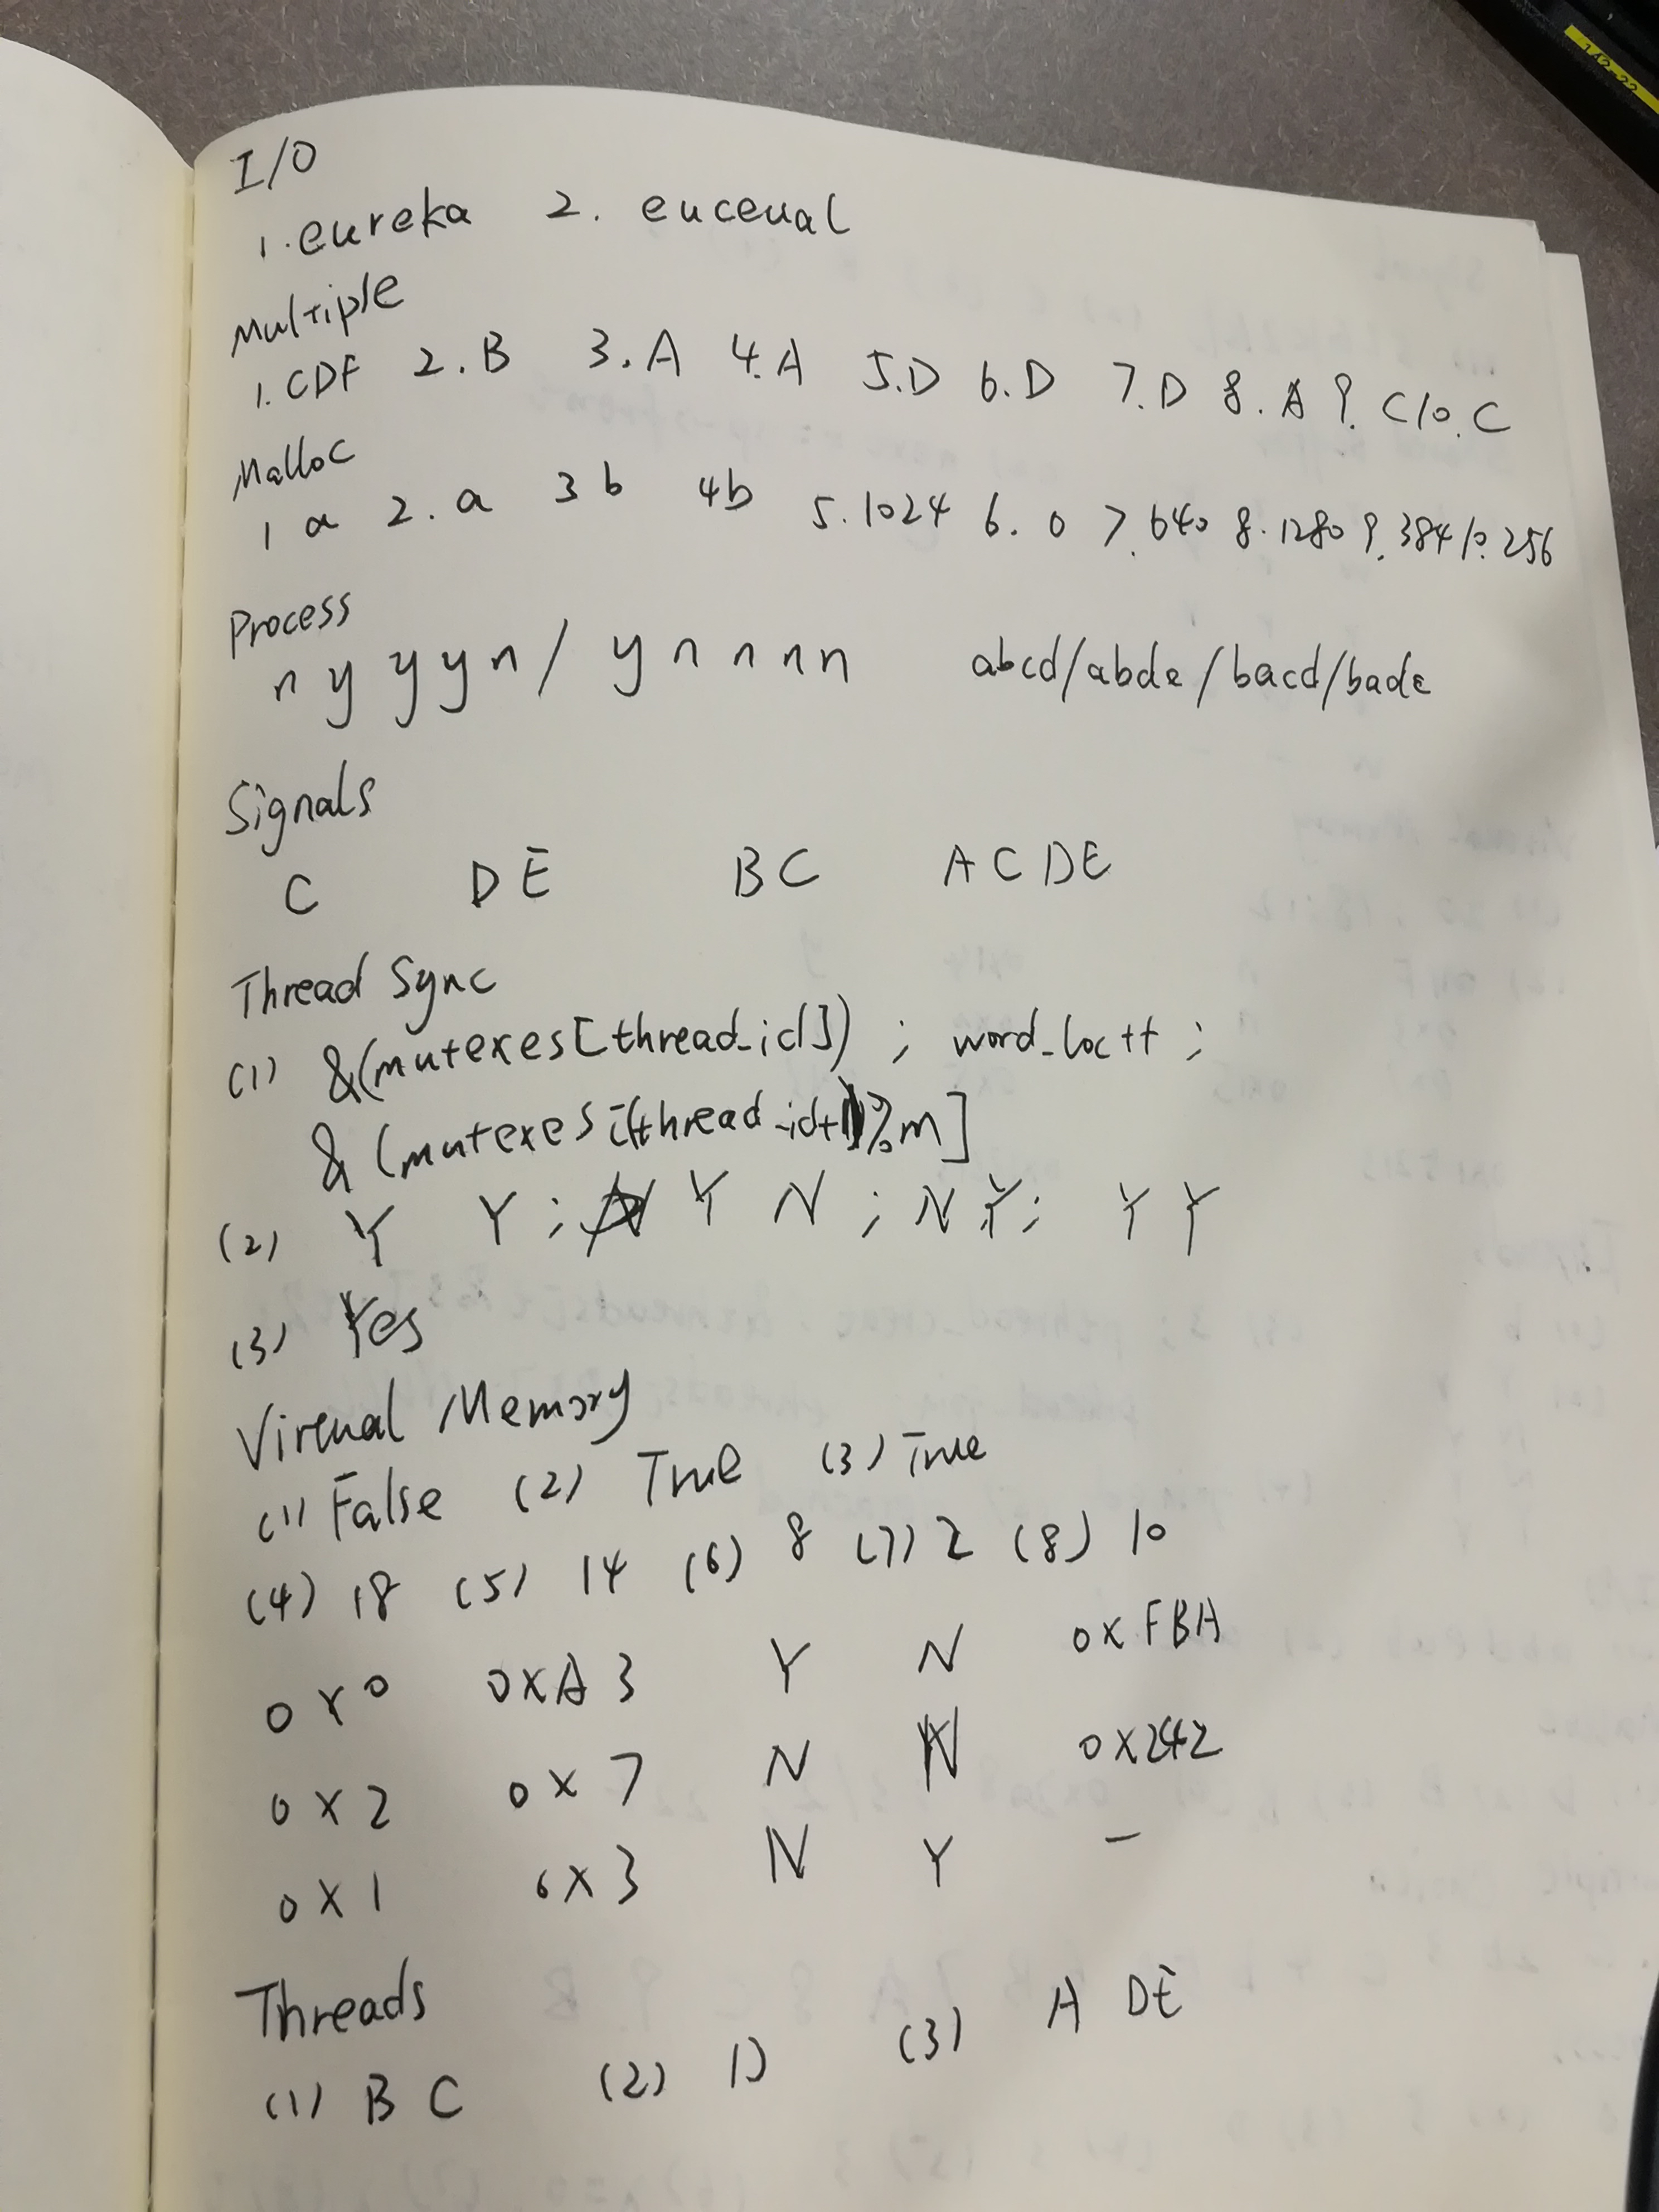 I/O
1. eureka 2. euceual
Multiple
1. CDF 2. B 3. A 4. A 5. D 6. D 7. D 8. A 9. C 10. C
Malloc
1 a 2. a 3 b 4b 5. 1024 6. 0 7. 640 8. 1280 9. 384 10. 256
Process
n y y y n / y n n n n abcd/abde/bacd/bade
Signals
C D E B C A C D E
Thread Sync
(1) &(mutexes[thread_id]) ; word_loc++ ;
& (mutexes[(thread_id+1)%m]
(2) Y Y ; Y N ; N Y ; Y Y
(3) Yes
Virtual Memory
(1) False (2) True (3) True
(4) 18 (5) 14 (6) 8 (7) 2 (8) 10
0x0 0xA3 Y N 0xFBA
0x2 0x7 N N 0x242
0x1 0x3 N Y —
Threads
(1) B C (2) D (3) A D E